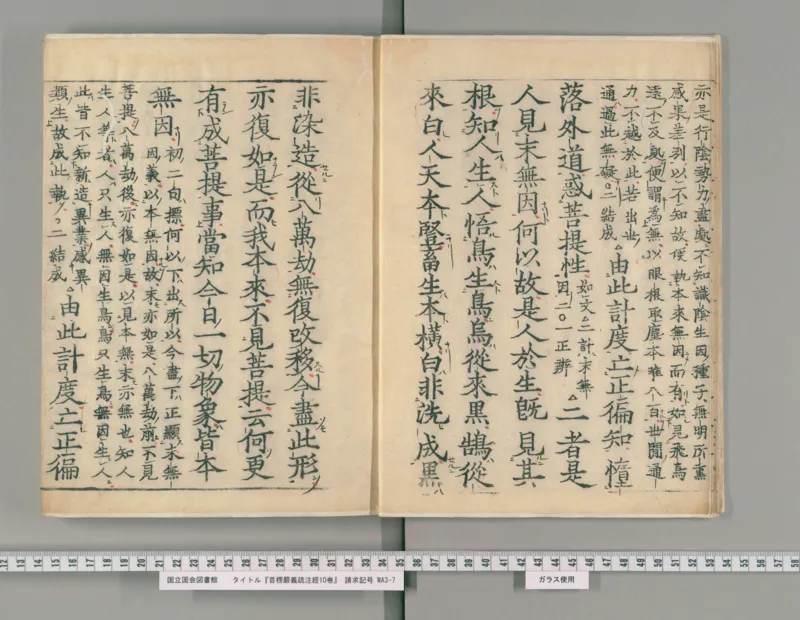 亦是行陰勢力盡處不知識陰生因種子無明所熏
感果差別以不知故便執本來無因而有如見飛鳥
遠不及處便謂為無以眼根取塵本唯八百世間通
力不越於此若出世
通過此無礙○二結成
△由此計度亡正徧知墮
落外道惑菩提性
如文△二計末無
因二○一正辨
△二者是
人見末無因何以故是人於生既見其
根知人生人悟鳥生鳥烏從來黑鵠從
來白人天本竪畜生本橫白非洗成黑
非染造從八萬劫無復改移今盡此形
亦復如是而我本來不見菩提云何更
有成菩提事當知今日一切物象皆本
無因
初二句摽何以下出所以今盡下正顯末無
因義以本無因故末亦如是八萬劫前不見
菩提八萬劫後亦復如是以見本無末亦無也知人
生人等者人只生人無因生鳥鳥只生鳥無因生人
此皆不知新造異業感異
類生故成此執○二結成
△由此計度亡正徧
国立国会図書館 タイトル『首楞嚴義疏注經10巻』 請求記号 WA3-7
ガラス使用